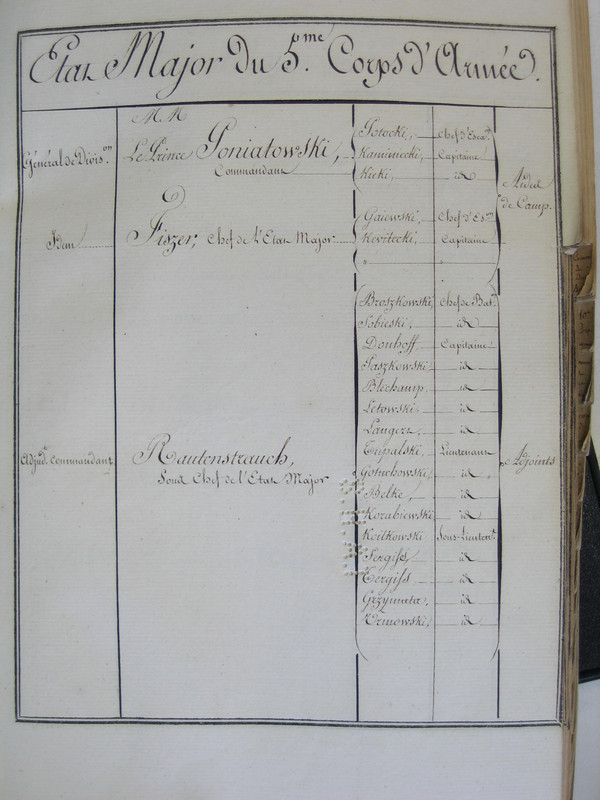 Etat Major du 5.me Corps d'Armée.
MM
Général de Divis.on Le Prince Poniatowski, Commandant
Potocki, Chef d'Esca.n
Kamieniecki, Capitaine
Kicki, id
Aides de Camp.
Idem Fiszer, Chef de l'Etat Major
Gaiewski, Chef d'Es.on
Kevitecki, Capitaine
" "
Adjud.t Commandant Rautenstrauch,
Sous Chef de l'Etat Major
Broszkowski, Chef de Bat.n
Sobieski, id
Donhoff Capitaine
Paszkowski id
Blechamp id
Letowski id
Langers id
Trepalski, Lieutenant
Goluchowski, id
Belke, id
Korabiewski id
Koilkowski Sous-Lieuten.t
Fergiss, id
Cergiss id
Grzymata, id
Nermowski, id
Adjoints